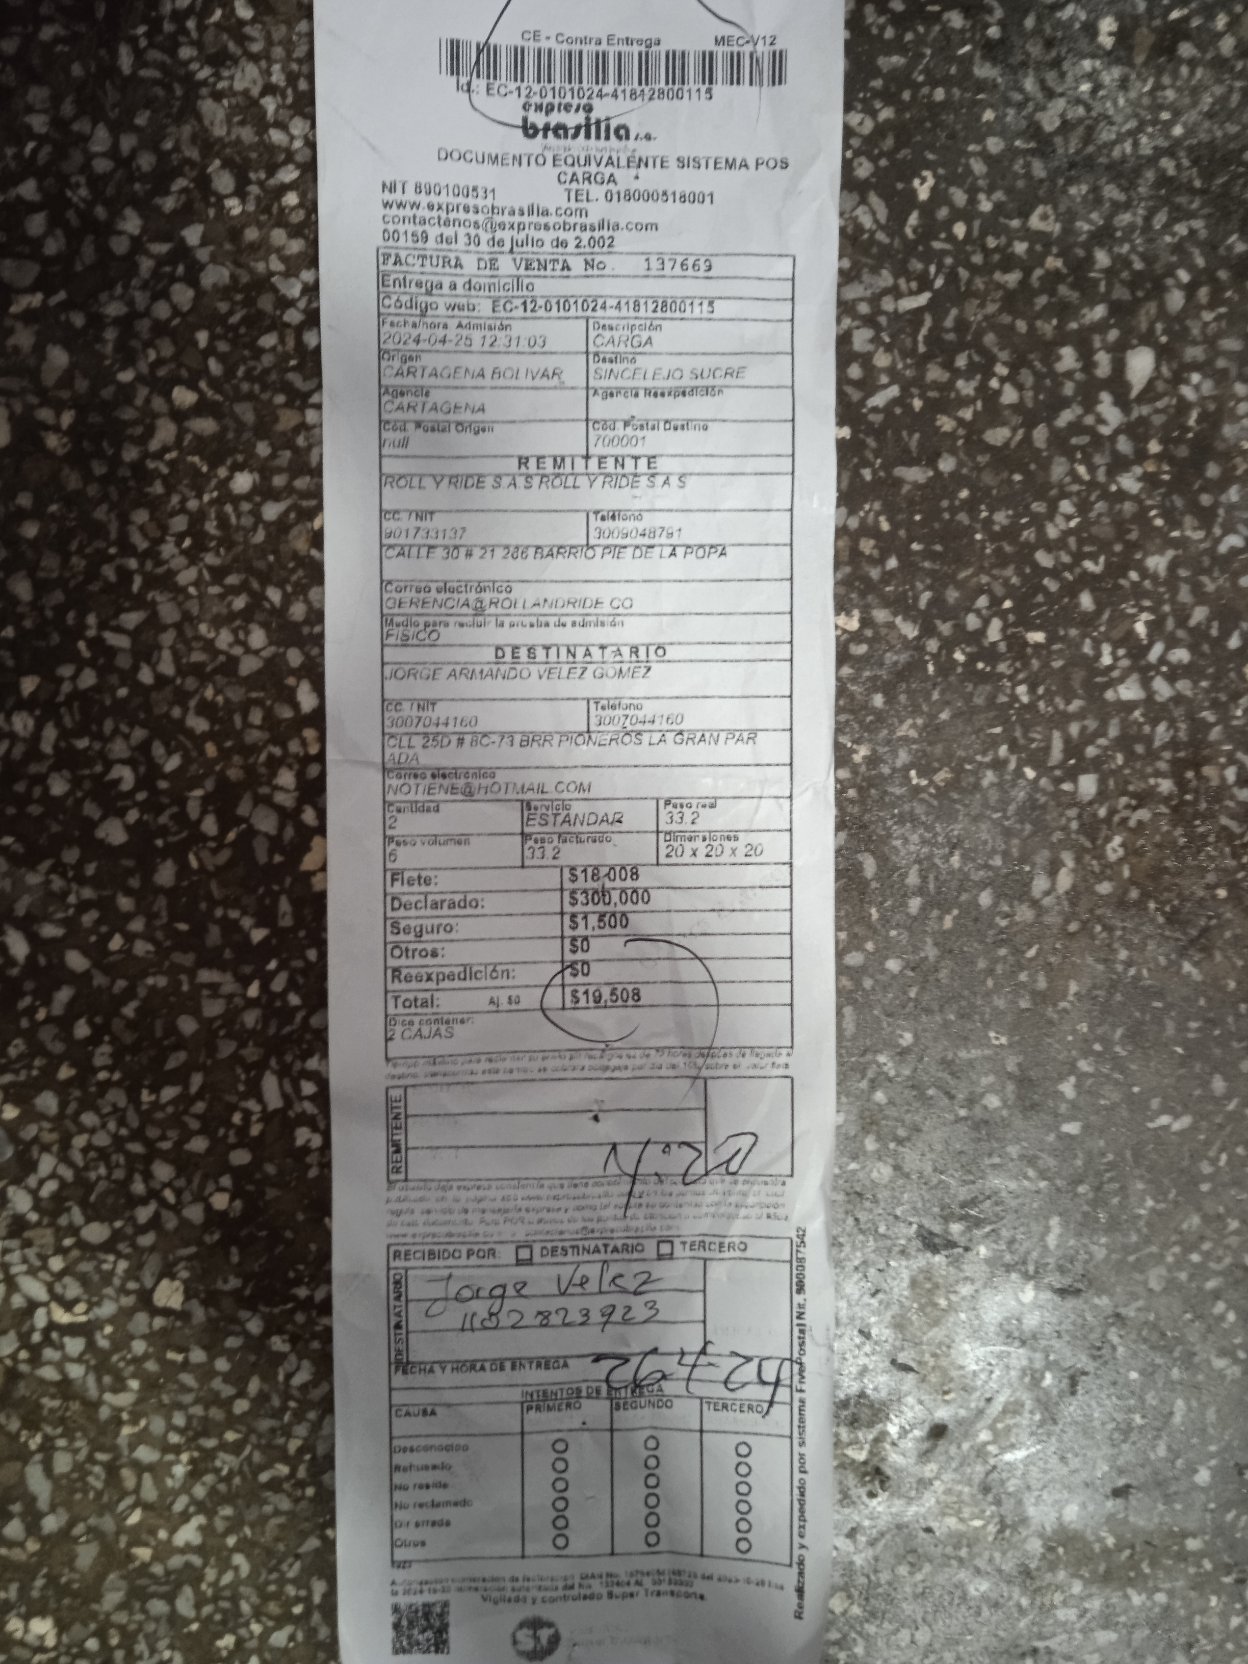 CE - Contra Entrega MEC-V12
Id.: EC-12-0101024-41812800115
expreso
brasilia s.a.
DOCUMENTO EQUIVALENTE SISTEMA POS
CARGA
NIT 890100531 TEL. 018000518001
www.expresobrasilia.com
contactenos@expresobrasilia.com
00159 del 30 de julio de 2.002
FACTURA DE VENTA No. 137669
Entrega a domicilio
Código web: EC-12-0101024-41812800115
Fecha/hora Admisión Descripción
2024-04-25 12:31:03 CARGA
Origen Destino
CARTAGENA BOLIVAR SINCELEJO SUCRE
Agencia Agencia Reexpedición
CARTAGENA
Cód. Postal Origen Cód. Postal Destino
null 700001
REMITENTE
ROLL Y RIDE S A S ROLL Y RIDE S A S
CC. / NIT Teléfono
901733137 3009048791
CALLE 30 # 21 286 BARRIO PIE DE LA POPA
Correo electrónico
GERENCIA@ROLLANDRIDE.CO
Medio para recibir la prueba de admisión
FISICO
DESTINATARIO
JORGE ARMANDO VELEZ GOMEZ
CC. / NIT Teléfono
3007044160 3007044160
CLL 25D # 8C-73 BRR PIONEROS LA GRAN PAR
ADA
Correo electrónico
NOTIENE@HOTMAIL.COM
Cantidad Servicio Peso real
2 ESTANDAR 33.2
Peso volumen Peso facturado Dimensiones
6 33.2 20 x 20 x 20
Flete: $18,008
Declarado: $300,000
Seguro: $1,500
Otros: $0
Reexpedición: $0
Total: Aj. $0 $19,508
Dice contener:
2 CAJAS
REMITENTE
RECIBIDO POR: DESTINATARIO TERCERO
DESTINATARIO
Jorge Velez
1102823923
FECHA Y HORA DE ENTREGA 26-4-24
INTENTOS DE ENTREGA
CAUSA PRIMERO SEGUNDO TERCERO
Desconocido
Rehusado
No reside
No reclamado
Dir errada
Otros
Vigilado y controlado Super Transporte.
ST
Realizado y expedido por sistema FivePostal Nit. 900087542